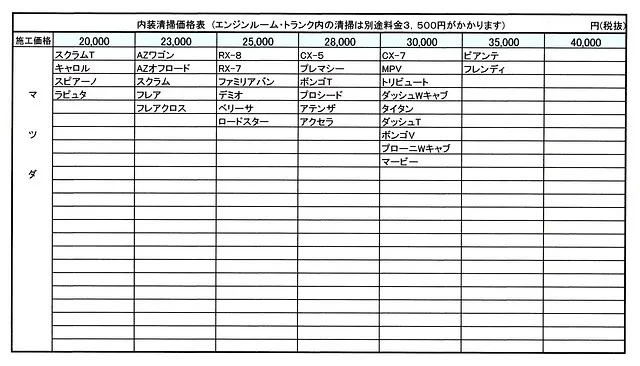 内装清掃価格表 (エンジンルーム・トランク内の清掃は別途料金3,500円がかかります) 円(税抜)
施工価格 20,000 23,000 25,000 28,000 30,000 35,000 40,000
マツダ
スクラムT AZワゴン RX-8 CX-5 CX-7 ビアンテ
キャロル AZオフロード RX-7 プレマシー MPV フレンディ
スピアーノ スクラム ファミリアバン ボンゴT トリビュート
ラピュタ フレア デミオ プロシード ダッシュWキャブ
フレアクロス ベリーサ アテンザ タイタン
ロードスター アクセラ ダッシュT
ボンゴV
ブローニWキャブ
マービー